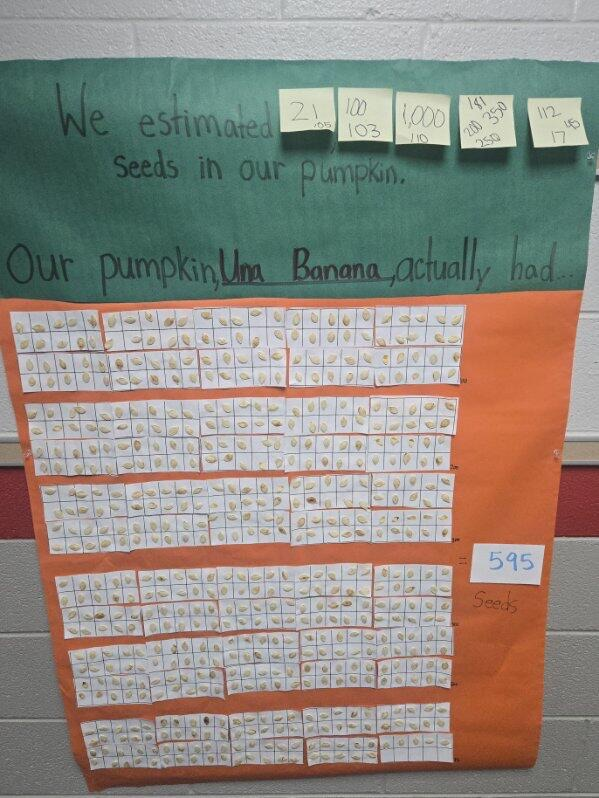 We estimated
21 .05
100
103
1,000
110
181
350
200
250
112
17
seeds in our pumpkin.
Our pumpkin, Una Banana, actually had...
= 595
Seeds